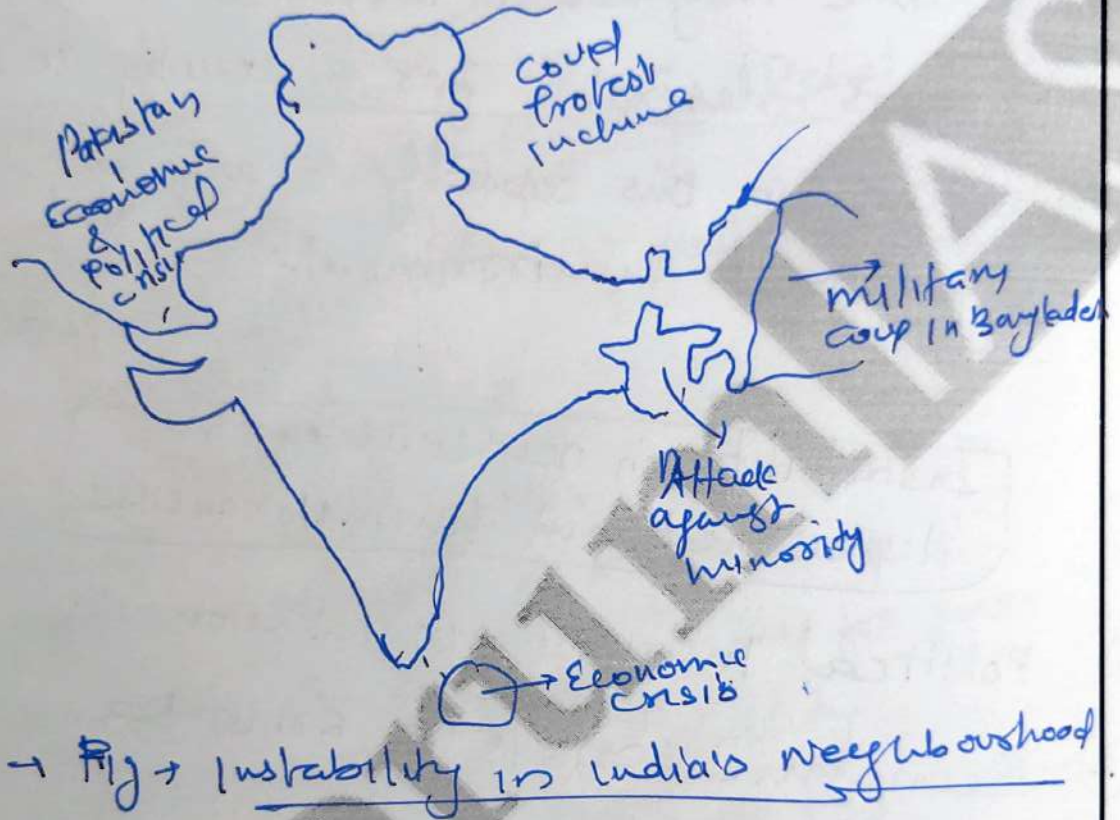 Pakistan
↓
Economic
&
political
crisis
Covid
Protest
in china
→ military
coup in Banglades
Attack
against
minority
→ Economic
crisis
→ Fig → Instability in India's Neighbourhood
rumIAS